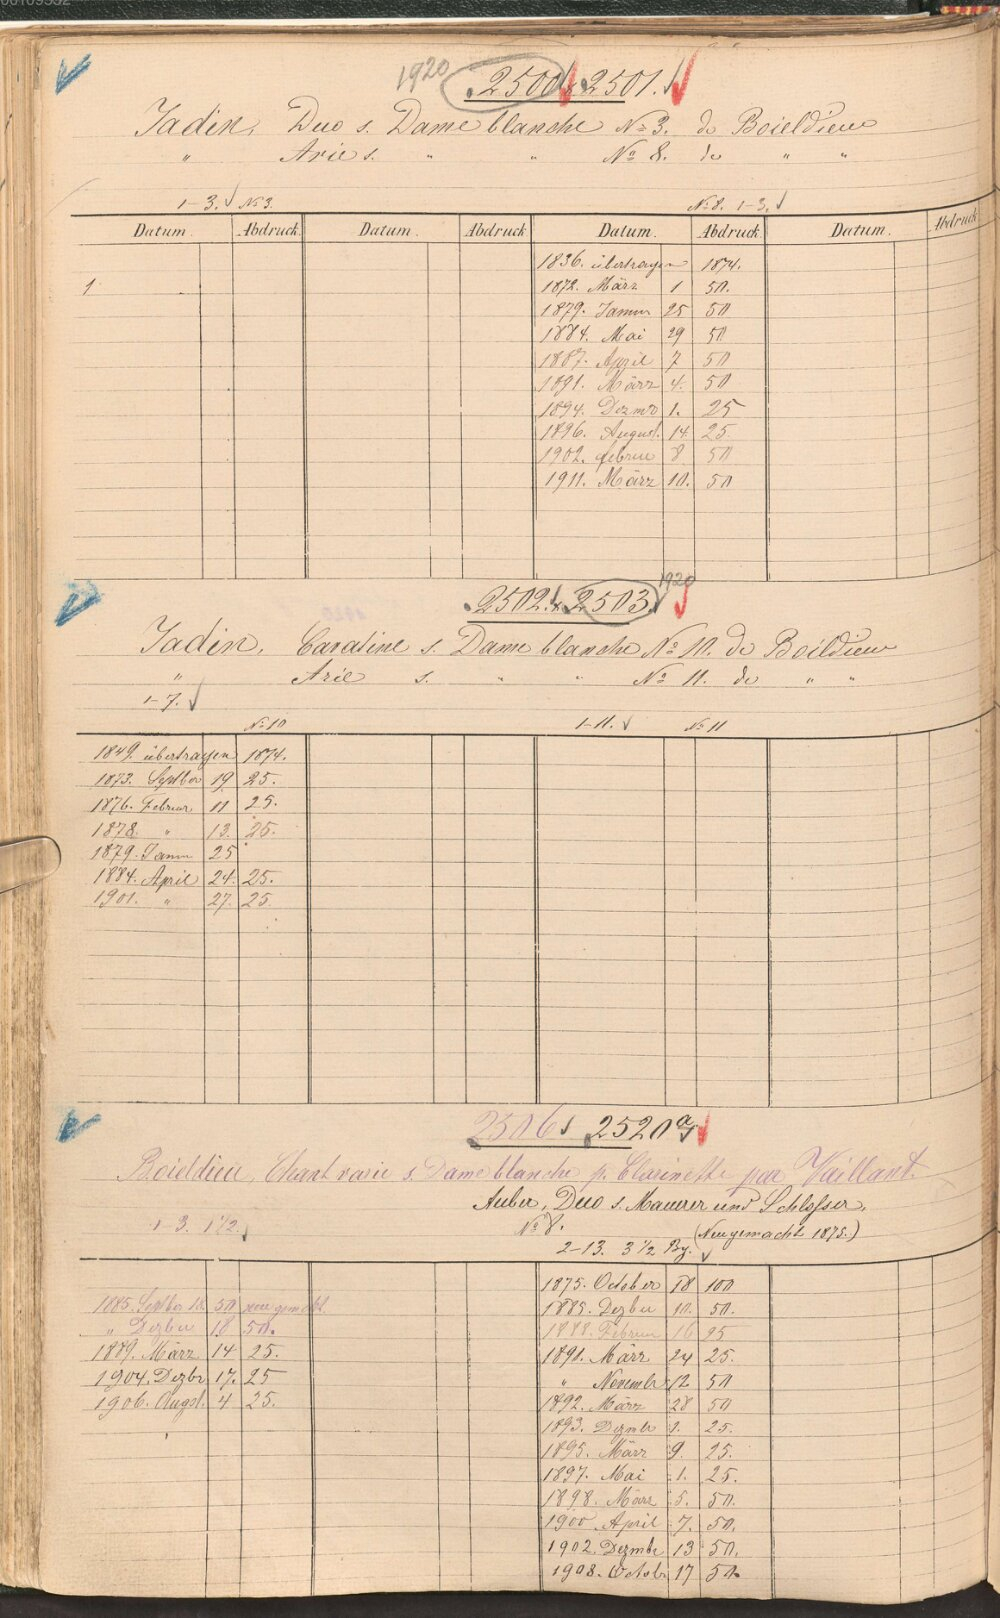 1920 2500 & 2501.
Jadin, Duo s. Dame blanche No 3. de Boieldieu
" Arie s. " " No 8. de " "
1-3. No 3. No 8. 1-3.
Datum. Abdruck. Datum. Abdruck Datum. Abdruck. Datum. Abdruck
1836. übertragen 1874.
1
1872. März 1 50.
1879. Januar 25 50
1884. Mai 29 50
1887. April 7 50
1891. März 4. 50
1894. Dezmbr 1. 25
1896. August. 14. 25.
1902. Februar 8 50
1911. März 10. 50
2502. & 2503. 1920
Jadin, Cavatine s. Dame blanche No 10. de Boildieu
" Arie s. " " No 11. de " "
1-7.
No 10 1-11. No 11
1849. übertragen 1874.
1873. Septber 19. 25.
1876. Februar 11 25.
1878. " 13. 25.
1879. Januar 25
1884. April 24. 25.
1901. " 27. 25.
2506 2520a
Boieldieu, Chant varie s. Dame blanche p. Clarinette par Vaillant.
Auber, Duo s. Maurer und Schlosser,
1-3. 1 1/2. No 8.
(Neugemacht 1875.)
2-13. 3 1/2 Bg.
1875. October 18 100
1885. Septber 18. 50 neu gemcht. 1885. Dezber 10. 50.
" Dezber 18 50. 1888. Februar 16 25
1889. März 14 25. 1891. März 24 25.
1904. Dezbr 17. 25 " Novembr 12. 50
1906. Augst. 4 25. 1892. März 28 50
1893. Dezmbr 1. 25.
1895. März 9. 25.
1897. Mai 1. 25.
1898. März 5. 50.
1900. April 7. 50.
1902. Dezmbr 13 50.
1908. Octobr 17 50.